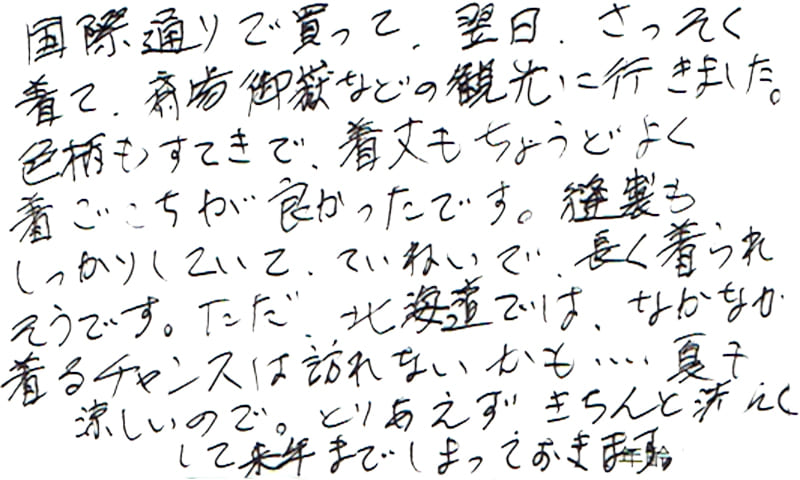 国際通りで買って、翌日、さっそく
着て、斎場御嶽などの観光に行きました。
色柄もすてきで、着丈もちょうどよく
着ごこちが良かったです。縫製も
しっかりしていて、ていねいで、長く着られ
そうです。ただ、北海道では、なかなか
着るチャンスは訪れないかも‥‥夏も
涼しいので。とりあえずきちんと洗たく
して来年までしまっておきます。